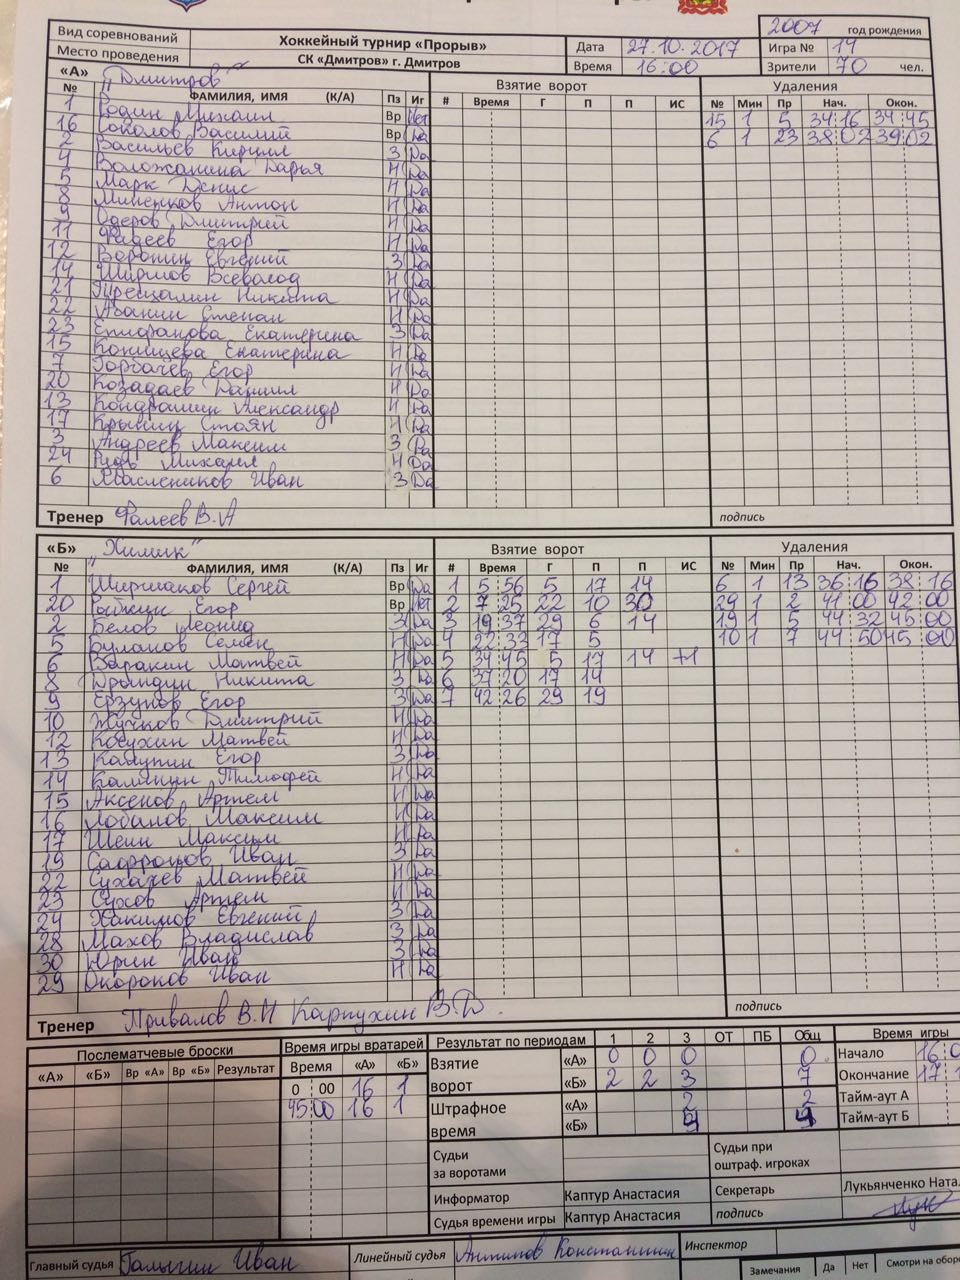 2007 год рождения
Вид соревнований Хоккейный турнир «Прорыв» Дата 27.10.2017 Игра № 14
Место проведения СК «Дмитров» г. Дмитров Время 16:00 Зрители 70 чел.
«А» "Дмитров" Взятие ворот Удаления
№ ФАМИЛИЯ, ИМЯ (К/А) Пз Иг # Время Г П П ИС № Мин Пр Нач. Окон.
1 Родин Михаил Вр Нет 15 1 5 34 16 34 45
16 Соколов Василий Вр Да 6 1 23 38 02 39 02
2 Васильев Кирилл З Да
4 Воложанина Дарья Н Да
5 Марк Денис Н Да
8 Миненков Антон Н Да
9 Одеров Дмитрий Н Да
11 Фадеев Егор Н Да
12 Воронин Евгений З Да
14 Ширшов Всеволод Н Да
21 Никита Н Да
22 Абанин Степан Н Да
23 Епифанова Екатерина З Да
15 Конищева Екатерина Н Да
7 Горбачев Егор Н Да
20 Козадаев Даниил Н Да
13 Кондрашин Александр Н Да
17 Крынин Стоян Н Да
3 Андреев Максим З Да
24 Рудь Михаил Н Да
6 Масленников Иван З Да
Тренер Фадеев В.А подпись
«Б» "Химик" Взятие ворот Удаления
№ ФАМИЛИЯ, ИМЯ (К/А) Пз Иг # Время Г П П ИС № Мин Пр Нач. Окон.
1 Ширшаков Сергей Вр Да 1 5 56 5 17 14 6 1 13 36 16 38 16
20 Егор Вр Нет 2 7 25 22 10 30 29 1 2 41 00 42 00
2 Белов Леонид З Да 3 19 37 29 6 14 19 1 5 44 32 45 00
5 Буланов Семен Н Да 4 22 33 17 5 10 1 7 44 50 45 00
6 Варакин Матвей Н Да 5 34 45 5 17 14 +1
8 Дрындин Никита З Да 6 37 20 17 14
9 Ерзунов Егор З Да 7 42 26 29 19
10 Жучков Дмитрий Н Да
12 Косухин Матвей Н Да
13 Калупин Егор З Да
14 Калинин Тимофей Н Да
15 Аксенов Артем Н Да
16 Лобанов Максим Н Да
17 Шеин Максим Н Да
19 Сафронов Иван З Да
22 Сухачев Матвей Н Да
23 Сухов Артем Н Да
24 Хакимов Евгений З Да
28 Махов Владислав З Да
30 Юрин Иван З Да
29 Окороков Иван Н Да
Тренер Привалов В.Н Карпухин В.Д. подпись
Послематчевые броски Время игры вратарей Результат по периодам 1 2 3 ОТ ПБ Общ Время игры
«А» «Б» Вр «А» Вр «Б» Результат Время «А» «Б» Взятие ворот «А» 0 0 0 0 Начало 16 0
0 00 16 1 «Б» 2 2 3 7 Окончание 17 1
45 00 16 1 Штрафное время «А» 2 2 Тайм-аут А
«Б» Тайм-аут Б
Судьи за воротами Судьи при оштраф. игроках
Информатор Каптур Анастасия Секретарь Лукьянченко Натал
Судья времени игры Каптур Анастасия подпись
Главный судья Галыгин Иван Линейный судья Антипов Константин Инспектор
Замечания Да Нет Смотри на оборо